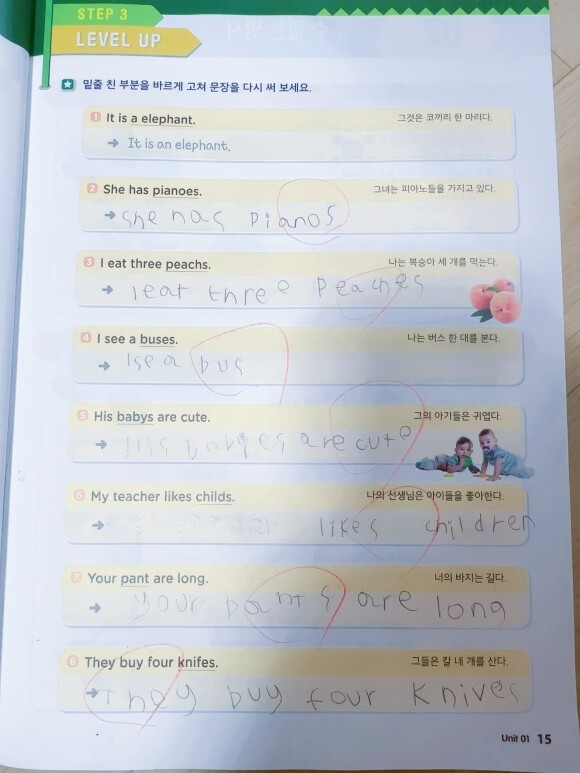 STEP 3
LEVEL UP
밑줄 친 부분을 바르게 고쳐 문장을 다시 써 보세요.
1 It is a elephant. 그것은 코끼리 한 마리다.
→ It is an elephant.
2 She has pianoes. 그녀는 피아노들을 가지고 있다.
→ she has pianos
3 I eat three peachs. 나는 복숭아 세 개를 먹는다.
→ I eat three peaches
4 I see a buses. 나는 버스 한 대를 본다.
→ I se a bus
5 His babys are cute. 그의 아기들은 귀엽다.
→ His babies are cute
6 My teacher likes childs. 나의 선생님은 아이들을 좋아한다.
→ likes children
7 Your pant are long. 너의 바지는 길다.
→ your pants are long
8 They buy four knifes. 그들은 칼 네 개를 산다.
→ They buy four knives
Unit 01 15